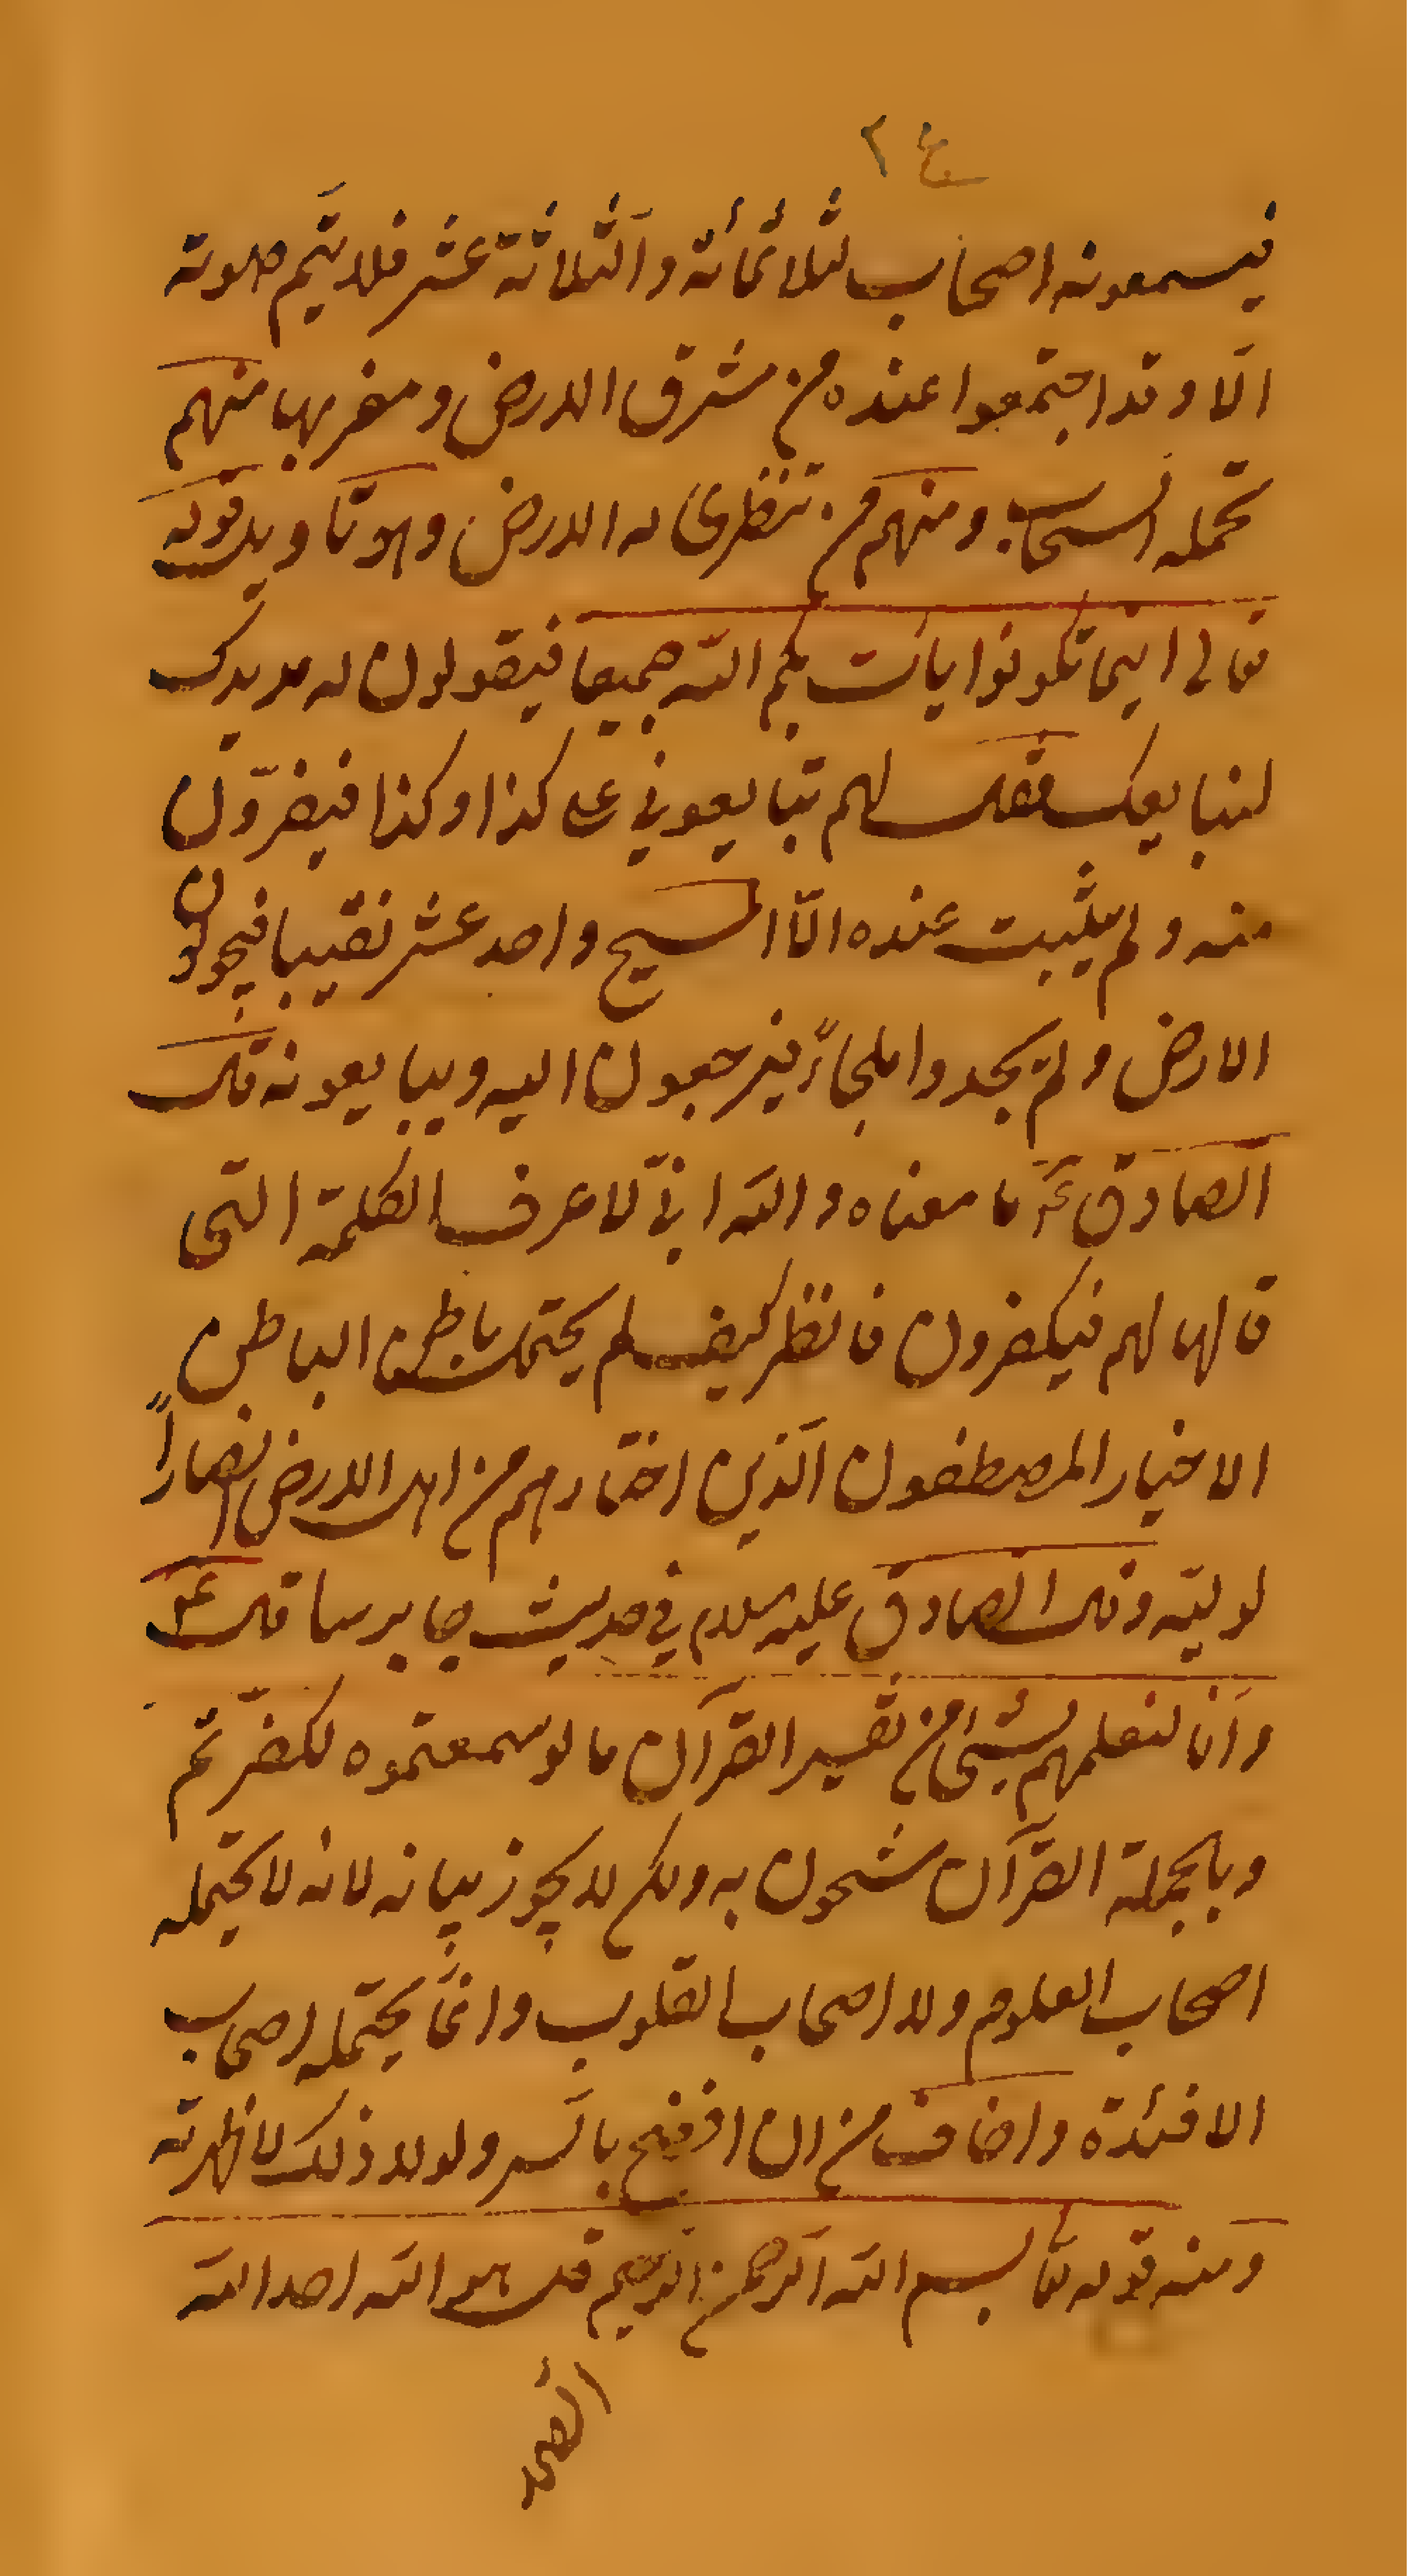 ع ٢
فيسمعونه اصحاب الثلاثمائة والثلاثة عشر فلا يتم صوته
الّا وقد اجتمعوا عنده من مشرق الارض ومغربها منهم
تحمله السحاب ومنهم من تنطوى له الارض وهو تاويل قوله
تعالى اينما تكونوا يات بكم الله جميعا فيقولون له مد يدك
لنبايعك فقال لهم تبايعوني على كذا وكذا فيفرّون
منه ولم يثبت عنده الّا المسيح واحد عشر نقيبا فيجولون
الارض ولم يجدوا ملجاءً فيرجعون اليه ويبايعونه قال
الصادق ع ما معناه والله انّي لاعرف الكلمة التي
قالها لهم فيكفرون فانظر كيف لم يحتمل باطن الباطن
الاخيار المصطفون الّذين اختارهم من اهل الارض انصاراً
لوليّه وقال الصادق عليه السلام في حديث جابرسا قال ع
وانا لنعلمهم بشيئ من تفسير القرآن ما لو سمعتموه لكفرتم
وبالجملة القرآن مشحون به ولكن لا يجوز بيانه لانه لا يحتمله
اصحاب العلوم ولا اصحاب القلوب وانما يحتمله اصحاب
الافئدة واخاف من ان افضح بالسر ولولا ذلك لاظهرته
ومنه قوله تعا بسم الله الرحمن الرحيم قل هو الله احد الله
الصمد